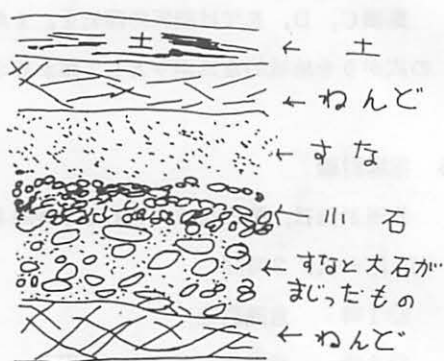 土 ← 土
← ねんど
← すな
← 川石
← すなと大石が
まじったもの
← ねんど